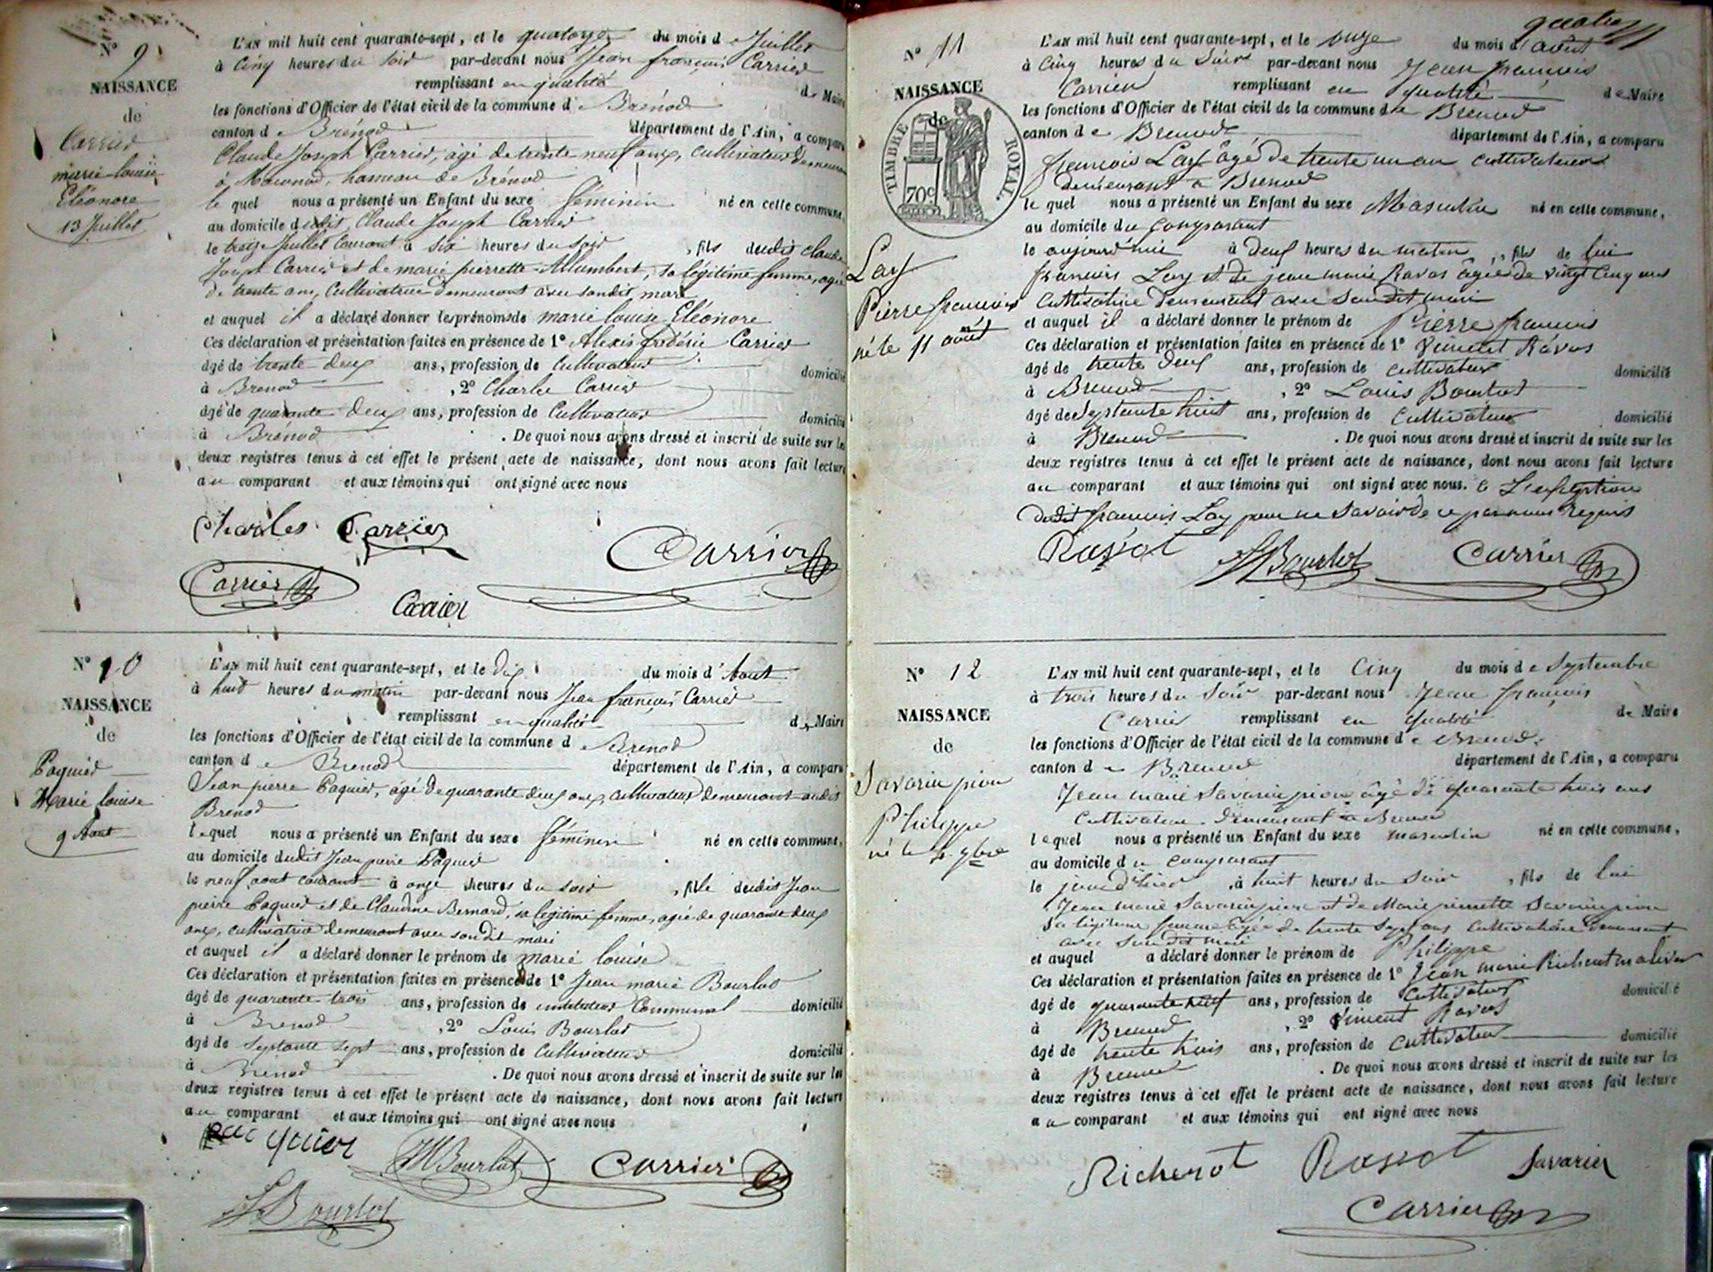 N° 9
NAISSANCE
de
Carrier
marie louise
Eléonore
13 Juillet
L'AN mil huit cent quarante-sept, et le quatorze du mois de Juillet
à Cinq heures du soir par-devant nous Jean françois Carrier
remplissant en qualité de Maire
les fonctions d'Officier de l'état civil de la commune de Brénod
canton de Brénod département de l'Ain, a comparu
Claude Joseph Carrier, âgé de trente neuf ans, cultivateur demeurant
à hameau de Brénod
lequel nous a présenté un Enfant du sexe féminin né en cette commune,
au domicile dudit Claude Joseph Carrier
le treize Juillet courant à six heures du soir, fils dudit Claude
Joseph Carrier et de marie pierrette Allumbert, sa légitime femme, agée
de trente ans, Cultivatrice demeurant avec son dit mari
et auquel il a déclaré donner les prénoms de marie louise Eléonore
Ces déclaration et présentation faites en présence de 1° Alexis frédéric Carrier
âgé de trente deux ans, profession de Cultivateur domicilié
à Brénod, 2° Charles Carrier
âgé de quarante deux ans, profession de Cultivateur domicilié
à Brénod. De quoi nous avons dressé et inscrit de suite sur les
deux registres tenus à cet effet le présent acte de naissance, dont nous avons fait lecture
au comparant et aux témoins qui ont signé avec nous
Charles Carrier
Carrier
Carrier
Carrier
N° 10
NAISSANCE
de
Paquier
Marie louise
9 Aout
L'AN mil huit cent quarante-sept, et le Dix du mois d'Aout
à huit heures du matin par-devant nous Jean françois Carrier
remplissant en qualité de Maire
les fonctions d'Officier de l'état civil de la commune de Brenod
canton de Brenod département de l'Ain, a comparu
Jean pierre Paquier, âgé de quarante deux ans, cultivateur demeurant audit
Brenod
lequel nous a présenté un Enfant du sexe féminin né en cette commune,
au domicile dudit Jean pierre Paquier
le neuf aout courant à onze heures du soir, fille dudit Jean
pierre Paquier et de Claudine Bernard, sa légitime femme, agée de quarante deux
ans, cultivatrice demeurant avec son dit mari
et auquel il a déclaré donner le prénom de marie louise
Ces déclaration et présentation faites en présence de 1° Jean marie Bourlot
âgé de quarante trois ans, profession de instituteur Communal domicilié
à Brenod, 2° Louis Bourlot
âgé de septante sept ans, profession de Cultivateur domicilié
à Brénod. De quoi nous avons dressé et inscrit de suite sur les
deux registres tenus à cet effet le présent acte de naissance, dont nous avons fait lecture
au comparant et aux témoins qui ont signé avec nous
pacquier
JM Bourlot
Carrier
L Bourlot
quatre
N° 11
NAISSANCE
de
TIMBRE ROYAL
70c
Lay
Pierre françois
né le 11 août
L'AN mil huit cent quarante-sept, et le onze du mois d'août
à Cinq heures du Soir par-devant nous Jean françois
Carrier remplissant en qualité de Maire
les fonctions d'Officier de l'état civil de la commune de Brenod
canton de Brenod département de l'Ain, a comparu
françois Lay âgé de trente un an cultivateur
demeurant à Brenod
lequel nous a présenté un Enfant du sexe Masculin né en cette commune,
au domicile du comparant
le aujourd'hui à deux heures du matin, fils de lui
françois Lay et de jeanne marie Ravos âgée de vingt cinq ans
cultivatrice demeurant avec son dit mari
et auquel il a déclaré donner le prénom de Pierre françois
Ces déclaration et présentation faites en présence de 1° Vincent Ravos
âgé de trente deux ans, profession de cultivateur domicilié
à Brenod, 2° Louis Bourlot
âgé de septante huit ans, profession de Cultivateur domicilié
à Brenod. De quoi nous avons dressé et inscrit de suite sur les
deux registres tenus à cet effet le présent acte de naissance, dont nous avons fait lecture
au comparant et aux témoins qui ont signé avec nous. à L'exception
dudit françois Lay pour ne savoir de ce par nous requis
L Bourlot
Carrier
N° 12
NAISSANCE
de
Savarin pion
Philippe
né le 4 7bre
L'AN mil huit cent quarante-sept, et le Cinq du mois de Septembre
à trois heures du Soir par-devant nous Jean françois
Carrier remplissant en qualité de Maire
les fonctions d'Officier de l'état civil de la commune de Brenod
canton de Brenod département de l'Ain, a comparu
Jean marie Savarin pion âgé de quarante huit ans
Cultivateur demeurant à Brenod
lequel nous a présenté un Enfant du sexe masculin né en cette commune,
au domicile du comparant
le jour d'hier, à huit heures du Soir, fils de lui
Jean marie Savarin pion et de Marie pierrette Savarin pion
sa légitime femme âgée de trente sept ans cultivatrice demeurant
avec son dit mari
et auquel a déclaré donner le prénom de Philippe
Ces déclaration et présentation faites en présence de 1° Jean marie Richerot
âgé de quarante neuf ans, profession de cultivateur domicilié
à Brenod, 2° Vincent Ravos
âgé de trente trois ans, profession de cultivateur domicilié
à Brenod. De quoi nous avons dressé et inscrit de suite sur les
deux registres tenus à cet effet le présent acte de naissance, dont nous avons fait lecture
au comparant et aux témoins qui ont signé avec nous
Richerot
Savarin
Carrier